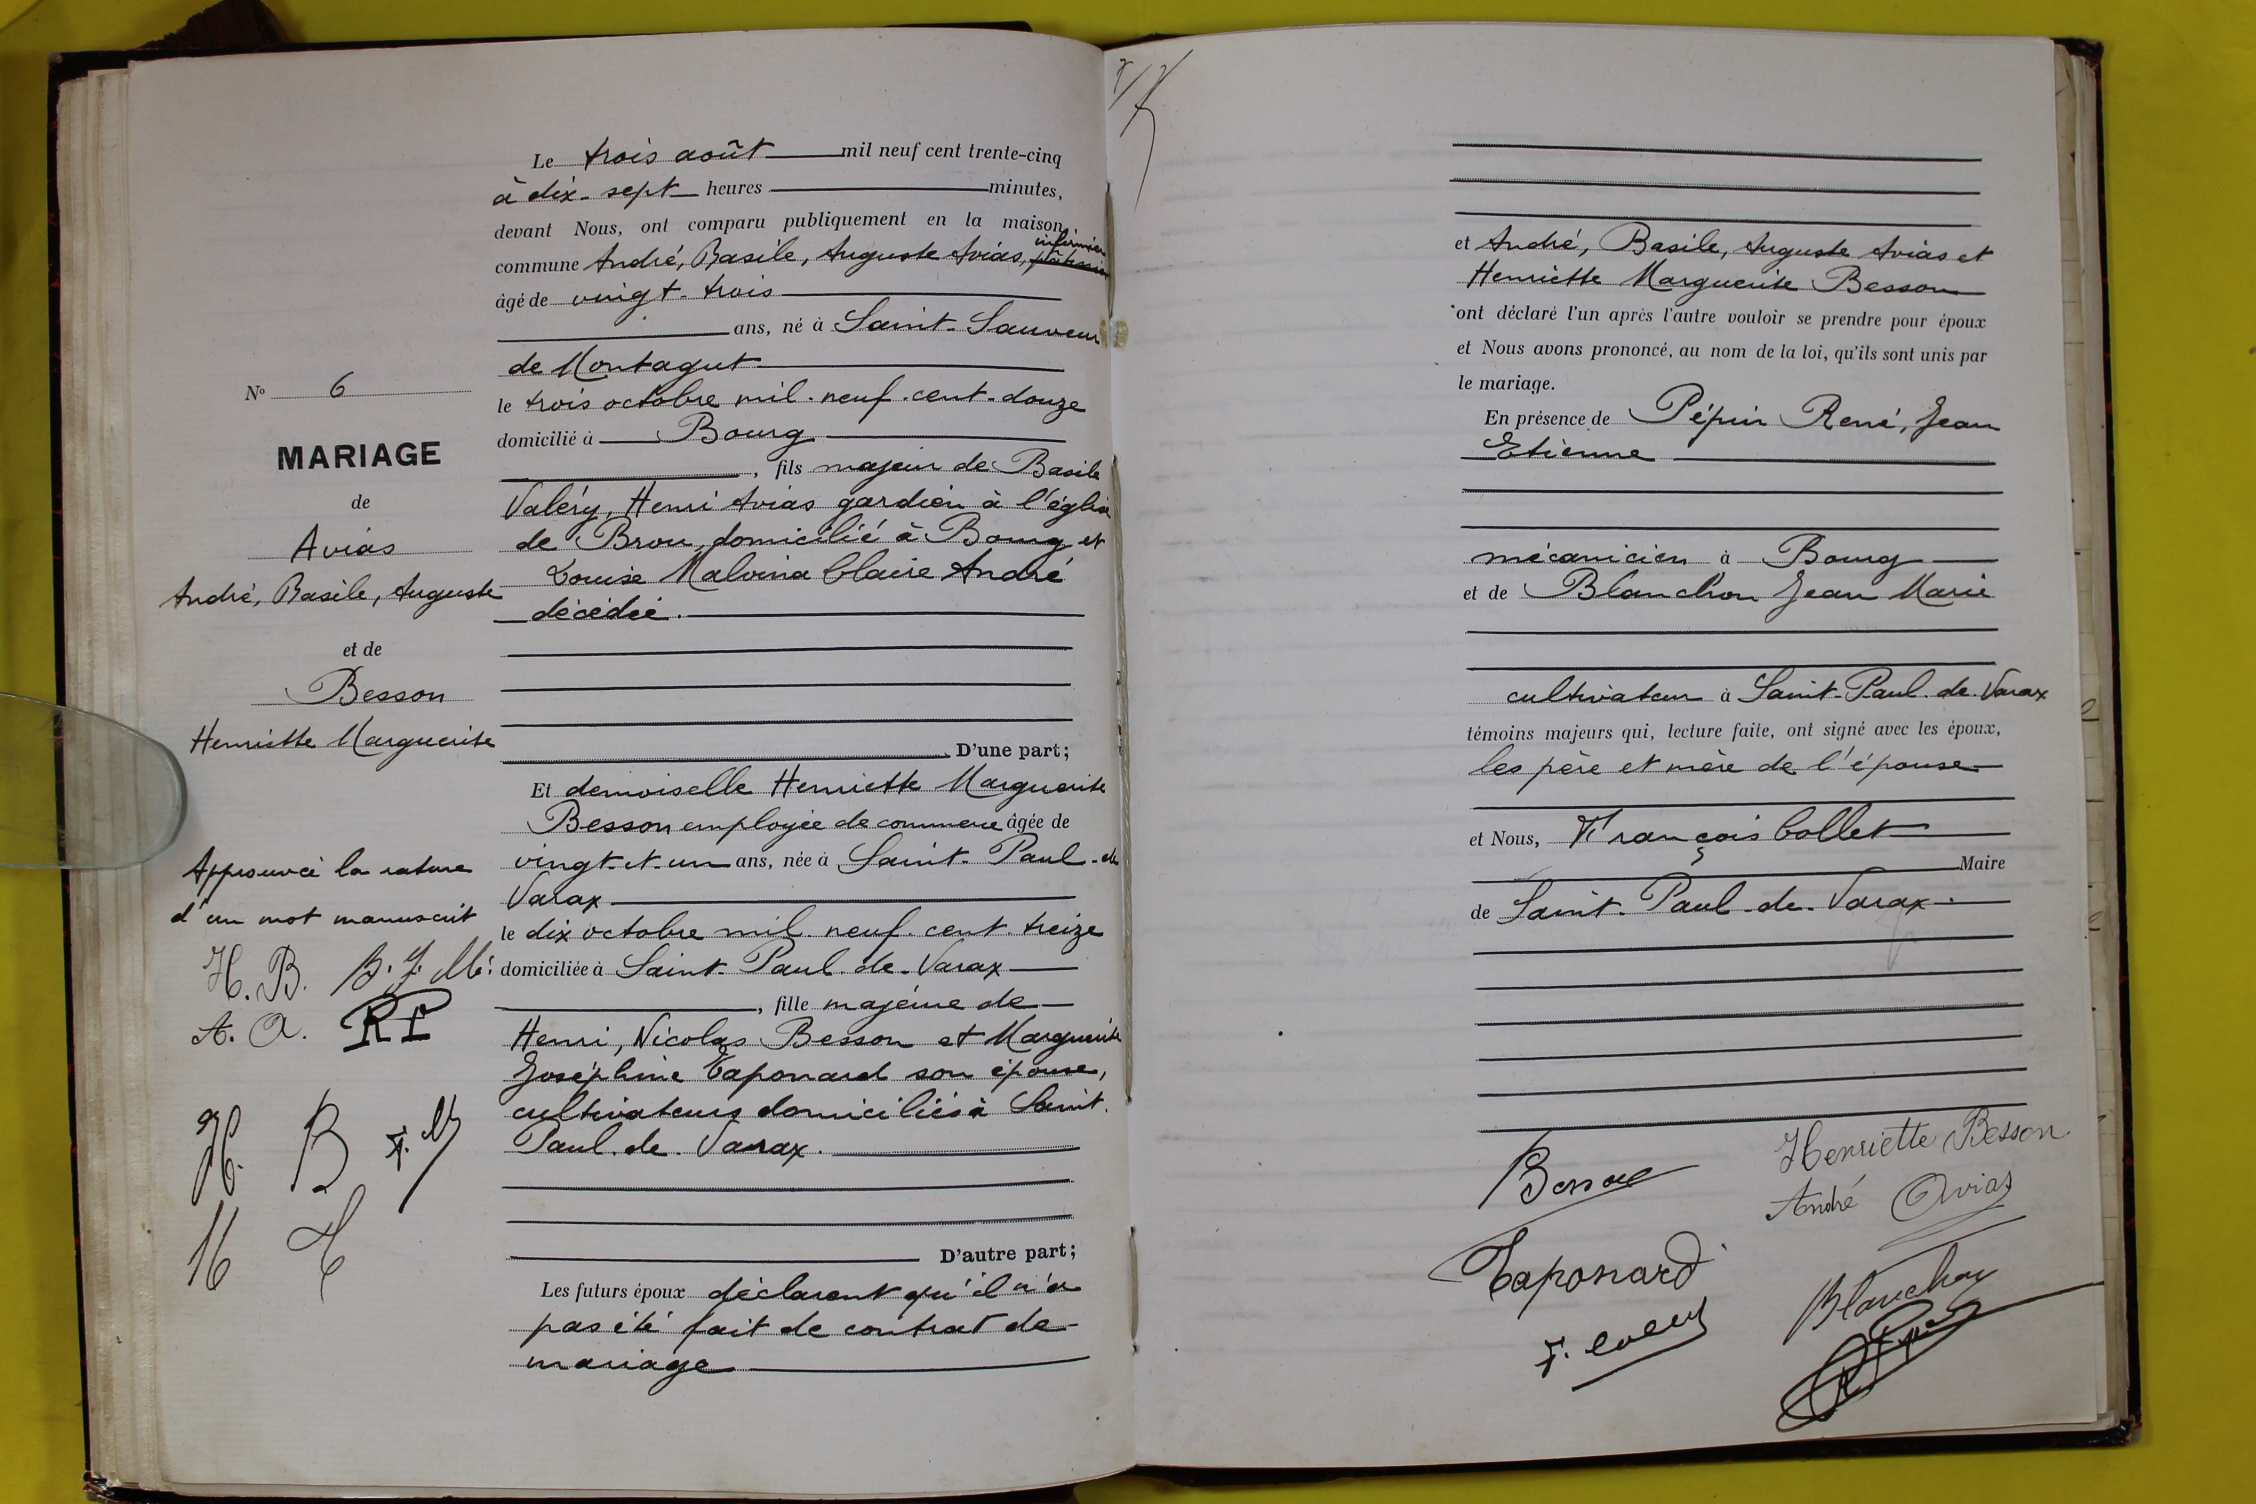 N° 6
MARIAGE
de
Avias
André, Basile, Auguste
et de
Besson
Henriette Marguerite
Approuvé la rature
d'un mot manuscrit
H. B. B. J. M.
A. A. RP
H. B F. C
M T
Le trois août mil neuf cent trente-cinq
à dix-sept heures minutes,
devant Nous, ont comparu publiquement en la maison
infirmier
commune André, Basile, Auguste Avias,
âgé de vingt-trois
ans, né à Saint-Sauveur
de Montagut
le trois octobre mil-neuf-cent-douze
domicilié à Bourg
, fils majeur de Basile
Valéry, Henri Avias gardien à l'église
de Brou, domicilié à Bourg et
Louise Malvina Claire André
décédée.
D'une part;
Et demoiselle Henriette Marguerite
Besson employée de commerce âgée de
vingt-et-un ans, née à Saint-Paul-de
Varax
le dix octobre mil-neuf-cent-treize
domiciliée à Saint-Paul-de-Varax
, fille majeure de
Henri, Nicolas Besson et Marguerite
Joséphine Taponard son épouse,
cultivateurs domiciliés à Saint-
Paul-de-Varax.
D'autre part;
Les futurs époux déclarent qu'il n'a
pas été fait de contrat de
mariage
et André, Basile, Auguste Avias et
Henriette Marguerite Besson
ont déclaré l'un après l'autre vouloir se prendre pour époux
et Nous avons prononcé, au nom de la loi, qu'ils sont unis par
le mariage.
En présence de Pépin René, Jean
Etienne
mécanicien à Bourg
et de Blanchon Jean Marie
cultivateur à Saint-Paul-de-Varax
témoins majeurs qui, lecture faite, ont signé avec les époux,
les père et mère de l'épouse
et Nous, François Collet
Maire
de Saint-Paul-de-Varax.
Besson
Henriette Besson
André Avias
Taponard
Blanchon
F. Collet